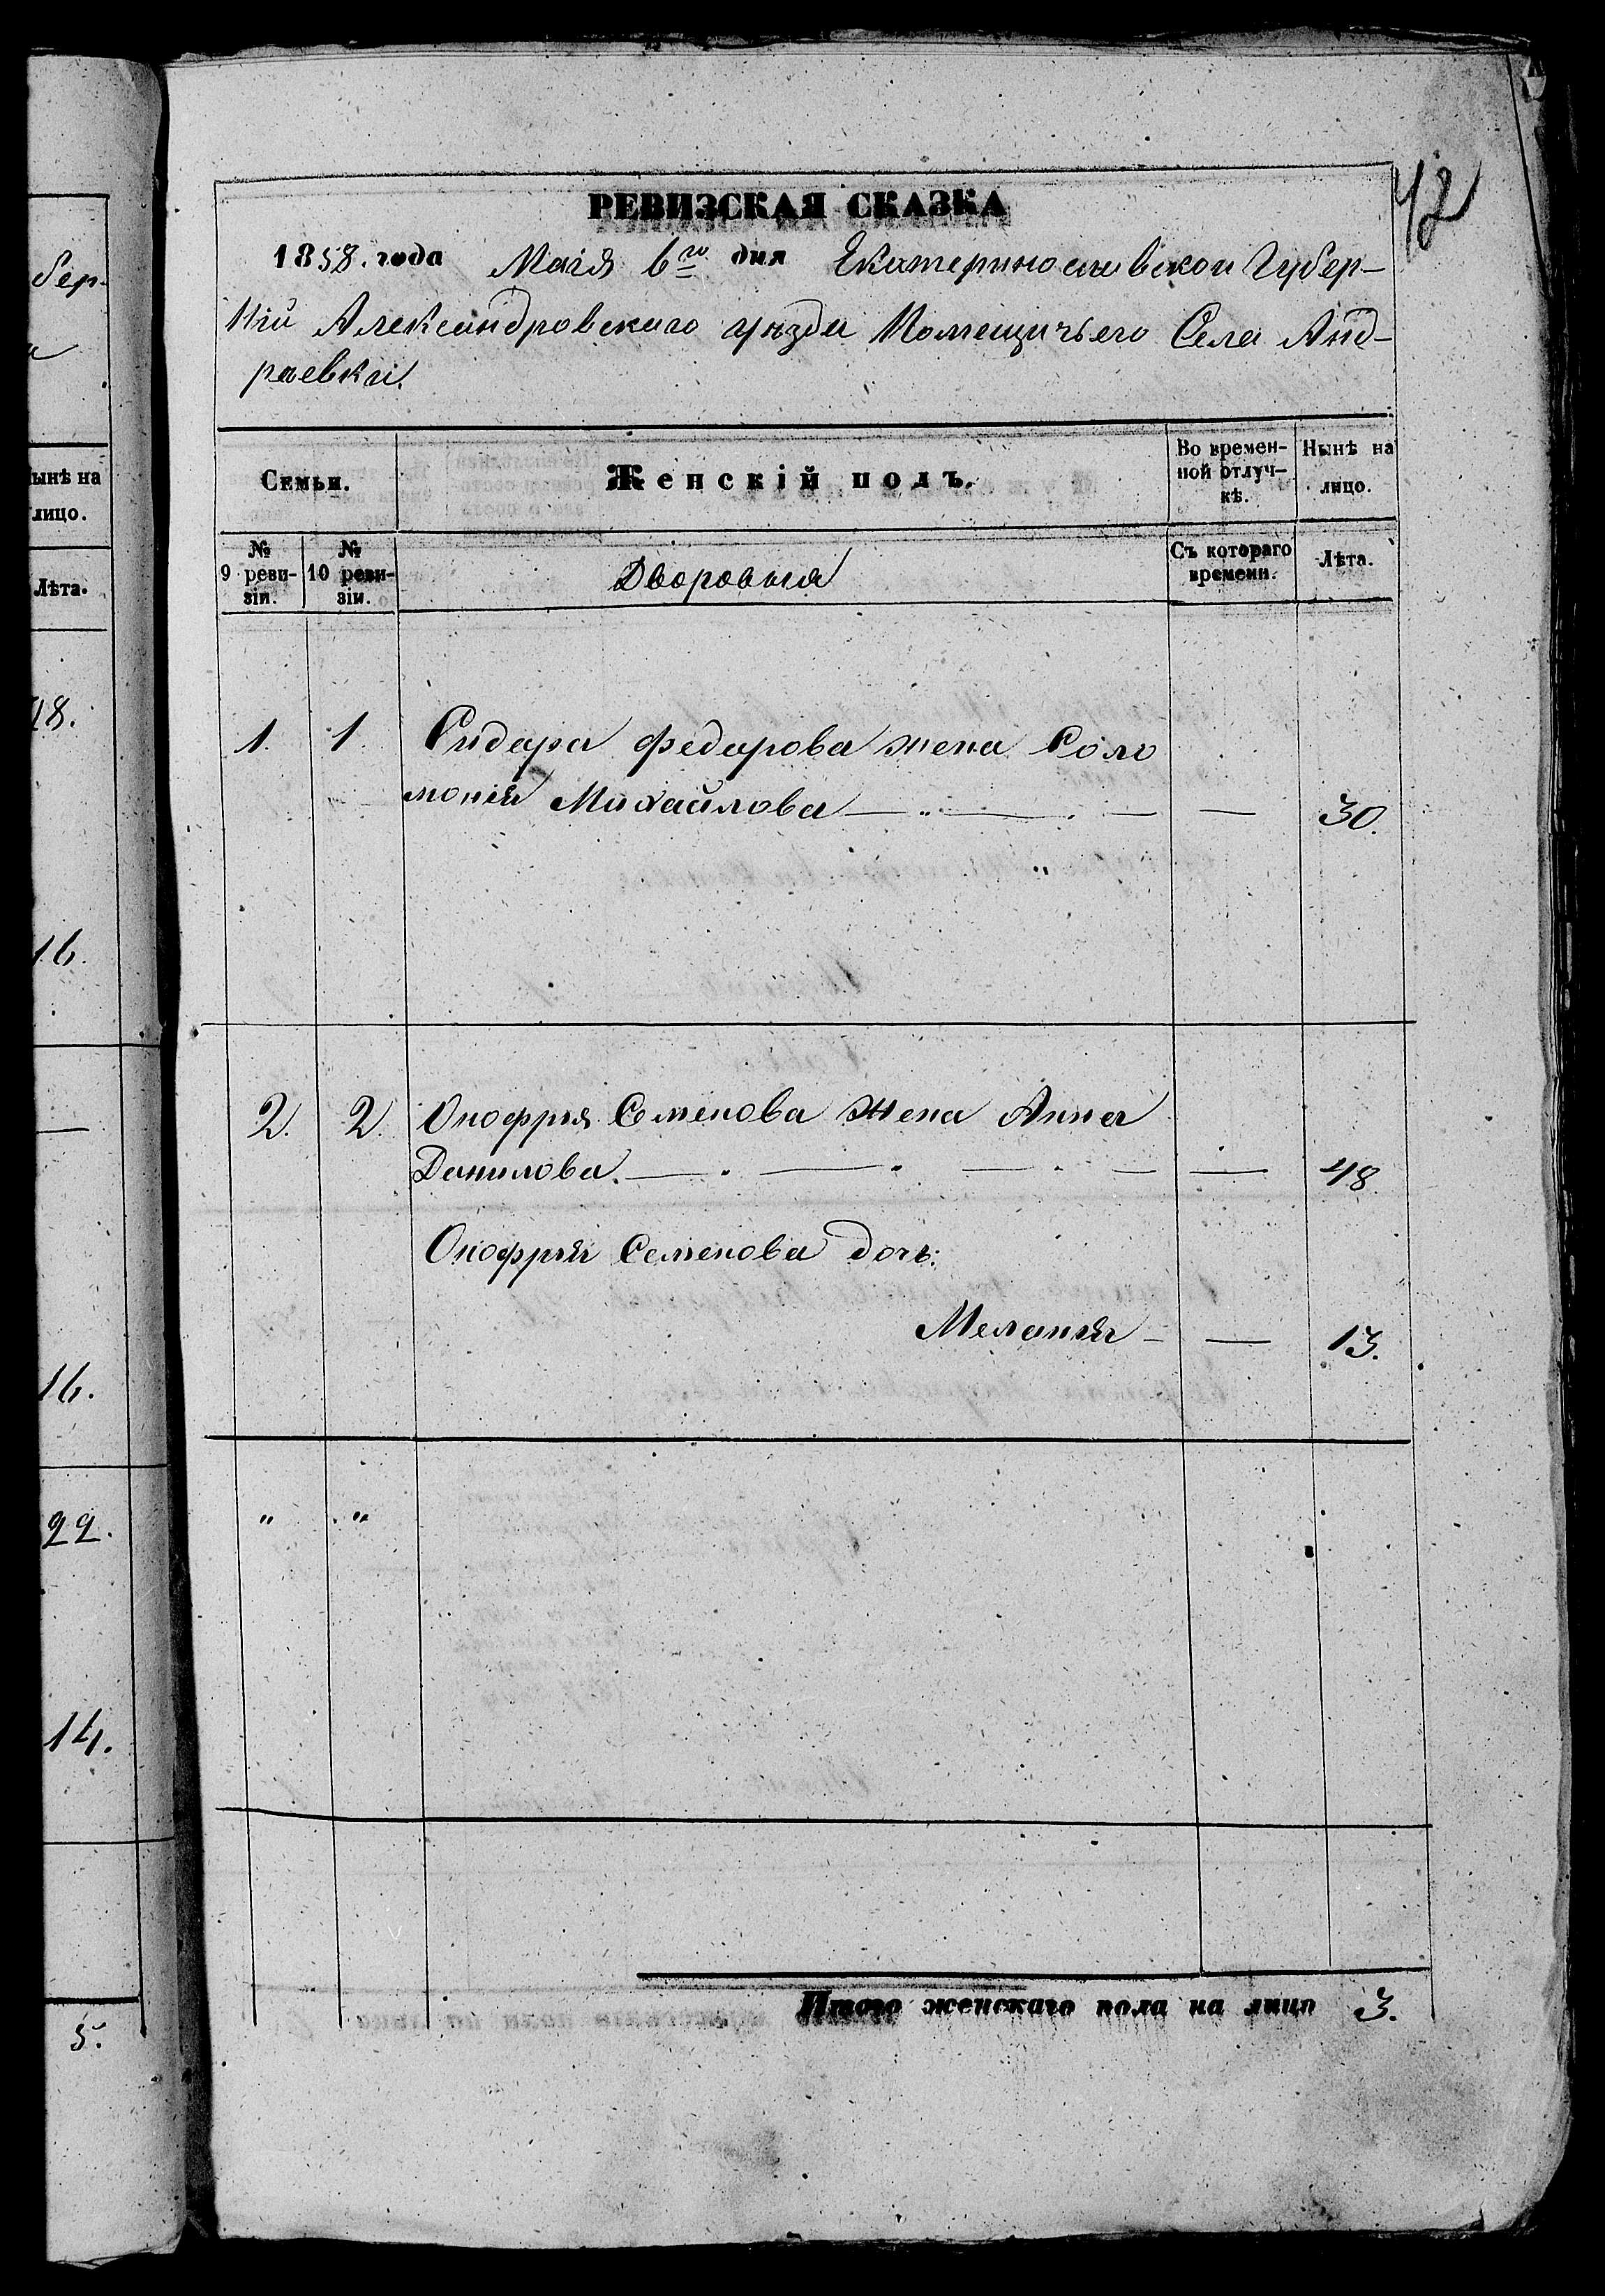 бер-
ынѣ на
лицо.
Лѣта.
18.
16.
16.
22.
14.
5.
42
РЕВИЗСКАЯ СКАЗКА
1858. года Маія 6го дня Екатеринославской Губер-
ніи Александровскаго уѣзда Помещичьего Села Анд-
раевки.
Семьи.
Женскій полъ.
Во времен-
ной отлуч-
кѣ.
Нынѣ на
лицо.
№
9 реви-
зіи.
№
10 реви-
зіи.
Дворовыя
Съ котораго
времени.
Лѣта.
1. 1. Сидара Федарова жена Соло
монія Михайлова — „ — . — — 30.
2. 2. Онофрия Семенова жена Анна
Данилова. — „ — „ — . — — 48.
Онофрия Семенова дочь:
Мелания — — 13.
„ „
Итого женскаго пола на лицо 3.